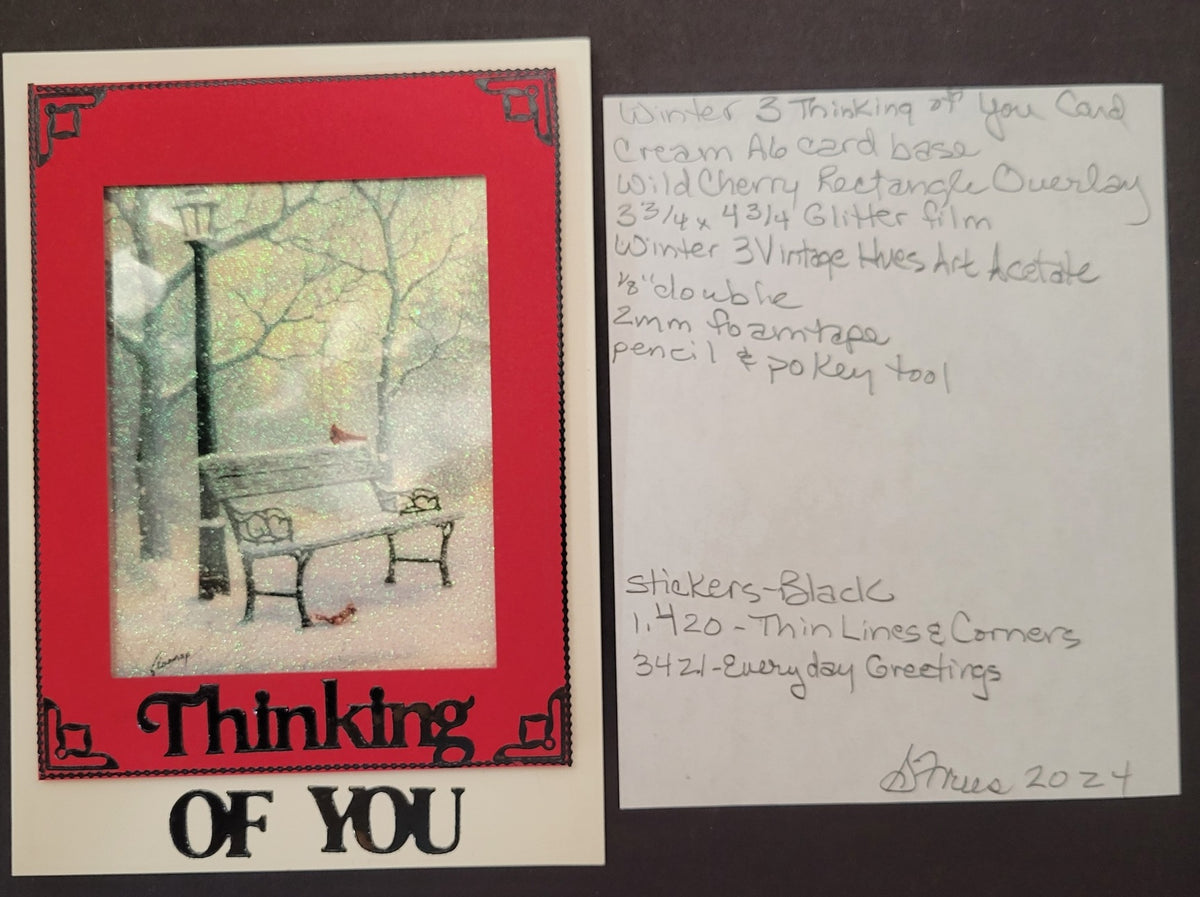 Thinking
OF YOU
Winter 3 Thinking of You Card
Cream A6 card base
Wild Cherry Rectangle Overlay
3 3/4 x 4 3/4 Glitter film
Winter 3 Vintage Hues Art Acetate
1/8" double
2mm foam tape
pencil & pokey tool
Stickers-Black
1.420 - Thin Lines & Corners
3421-Everyday Greetings
2024